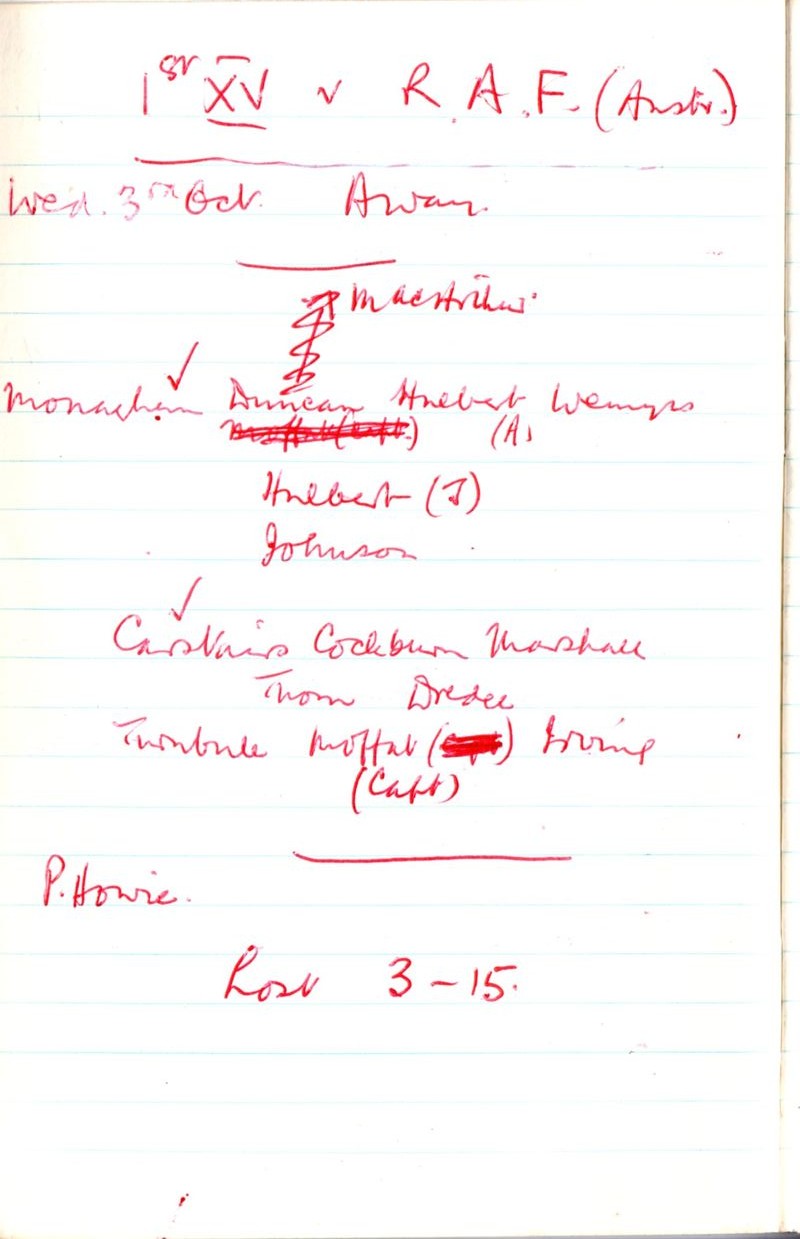 1st XV v R.A.F. (Austr.)
Wed. 3rd Oct. Away.
MacArthur.
✓
Monaghan Duncan Hulbert Wemyss
(A)
Hulbert (J)
Johnson
✓
Carstairs Cockburn Marshall
Thom Dredge
Turnbull Moffat () Irving
(Capt)
P. Howie.
Lost 3-15.